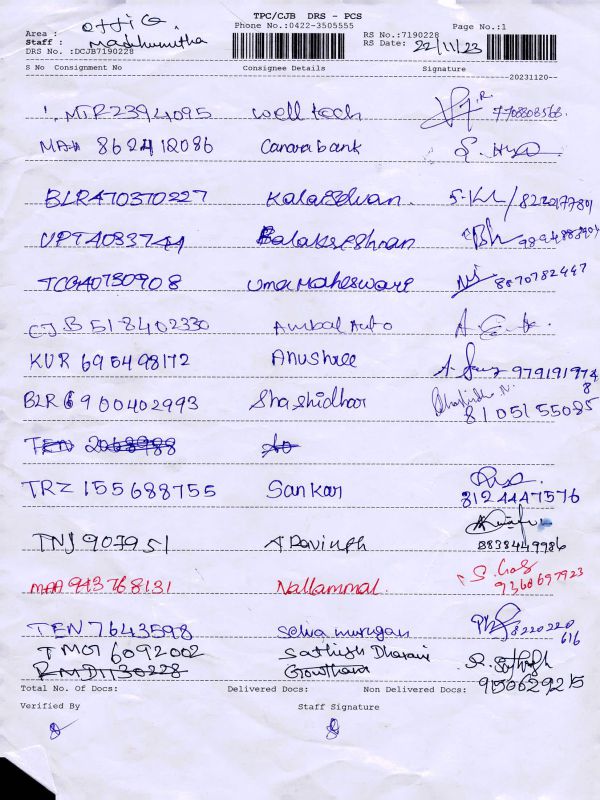 TPC/CJB DRS - PCS
Phone No.:0422-3505555 Page No.:1
Area : office RS No.:7190228
Staff : Madhumitha RS Date: 22/11/23
DRS No. :DCJB7190228
S No Consignment No Consignee Details Signature
20231120--
1. MTR2394095 well tech R. 7708808566
MAA 862412086 Canara bank
BLR470370227 Kalaiselvan
UPT4033744 Balakrishnan
TCG40730908 Uma Maheswari 8870782447
CJB 518402330 Ambal Auto
KUR 695498172 Anushree 9791919748
BLR 6900402993 Shashidhar 8105155085
TEN 2068988
TRZ 155688755 Sankar 8124447576
TNJ 907951 Aravinth 8838449986
MAA 943768131 Nallammal 9360697923
TEN 7643598 Selva murugan 8220220616
TM07 6092002 Sathish Dharani
RMD1130228 Gowtham 9150629215
Total No. Of Docs: Delivered Docs: Non Delivered Docs:
Verified By Staff Signature